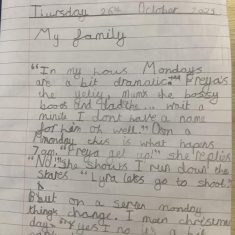 Thursday 26th October 2023
My family
"In my hous Mondays
are a bit dramatic." Freya's
the yelly, mums the bossy
boots and dad the... wait a
minite I dont have a name
for him oh well." On a
monday this is what hapens
7am "Freya get up!" she replies
"No!" she shouts I run down the
stares "Lyra lets go to shool."
But on a seren monday
things change. I mean christmas
day. yes I no it's a bit